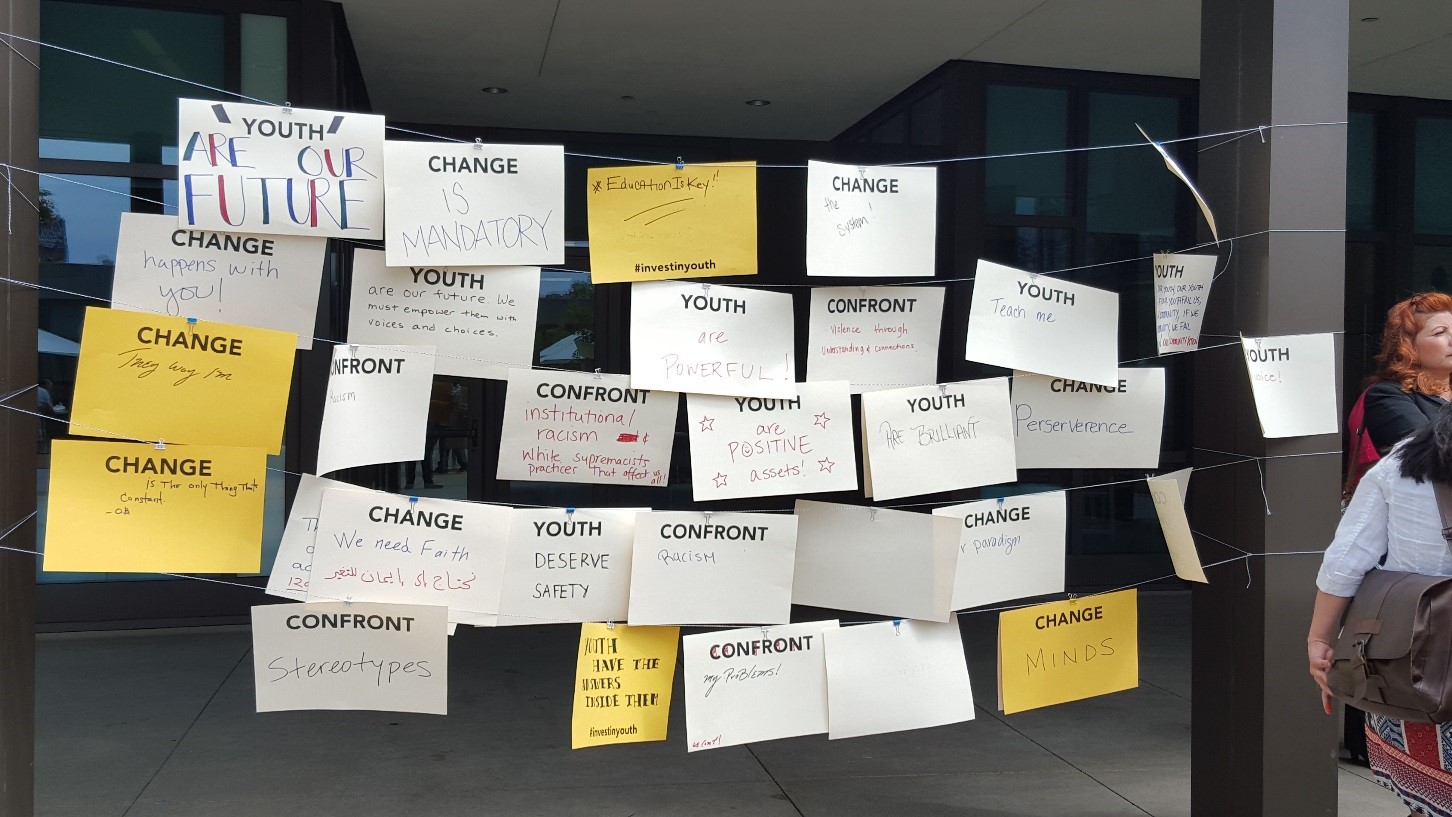 YOUTH
ARE OUR
FUTURE
CHANGE
IS
MANDATORY
* Education Is Key!"
#investinyouth
CHANGE
the
system!
CHANGE
happens with
you!
YOUTH
are our future. We
must empower them with
voices and choices.
YOUTH
are
POWERFUL!
CONFRONT
violence through
Understanding & connections.
YOUTH
Teach me
YOUTH
CHANGE
They way I'm
NFRONT
Racism
CONFRONT
institutional
racism &
While supremacists
practices That affect us
all!
YOUTH
are
POSITIVE
assets!
YOUTH
ARE BRILLIANT
CHANGE
Perserverence
OUTH
oice!
CHANGE
Is The only Thing That's
Constant.
-OB
CHANGE
We need Faith
نحتاج إلى إيمان للتغير
YOUTH
DESERVE
SAFETY
CONFRONT
Racism
CHANGE
r paradigm
CONFRONT
Stereotypes
YOUTH
HAVE THE
ANSWERS
INSIDE THEM
#investinyouth
CONFRONT
my Problems!
CHANGE
MINDS